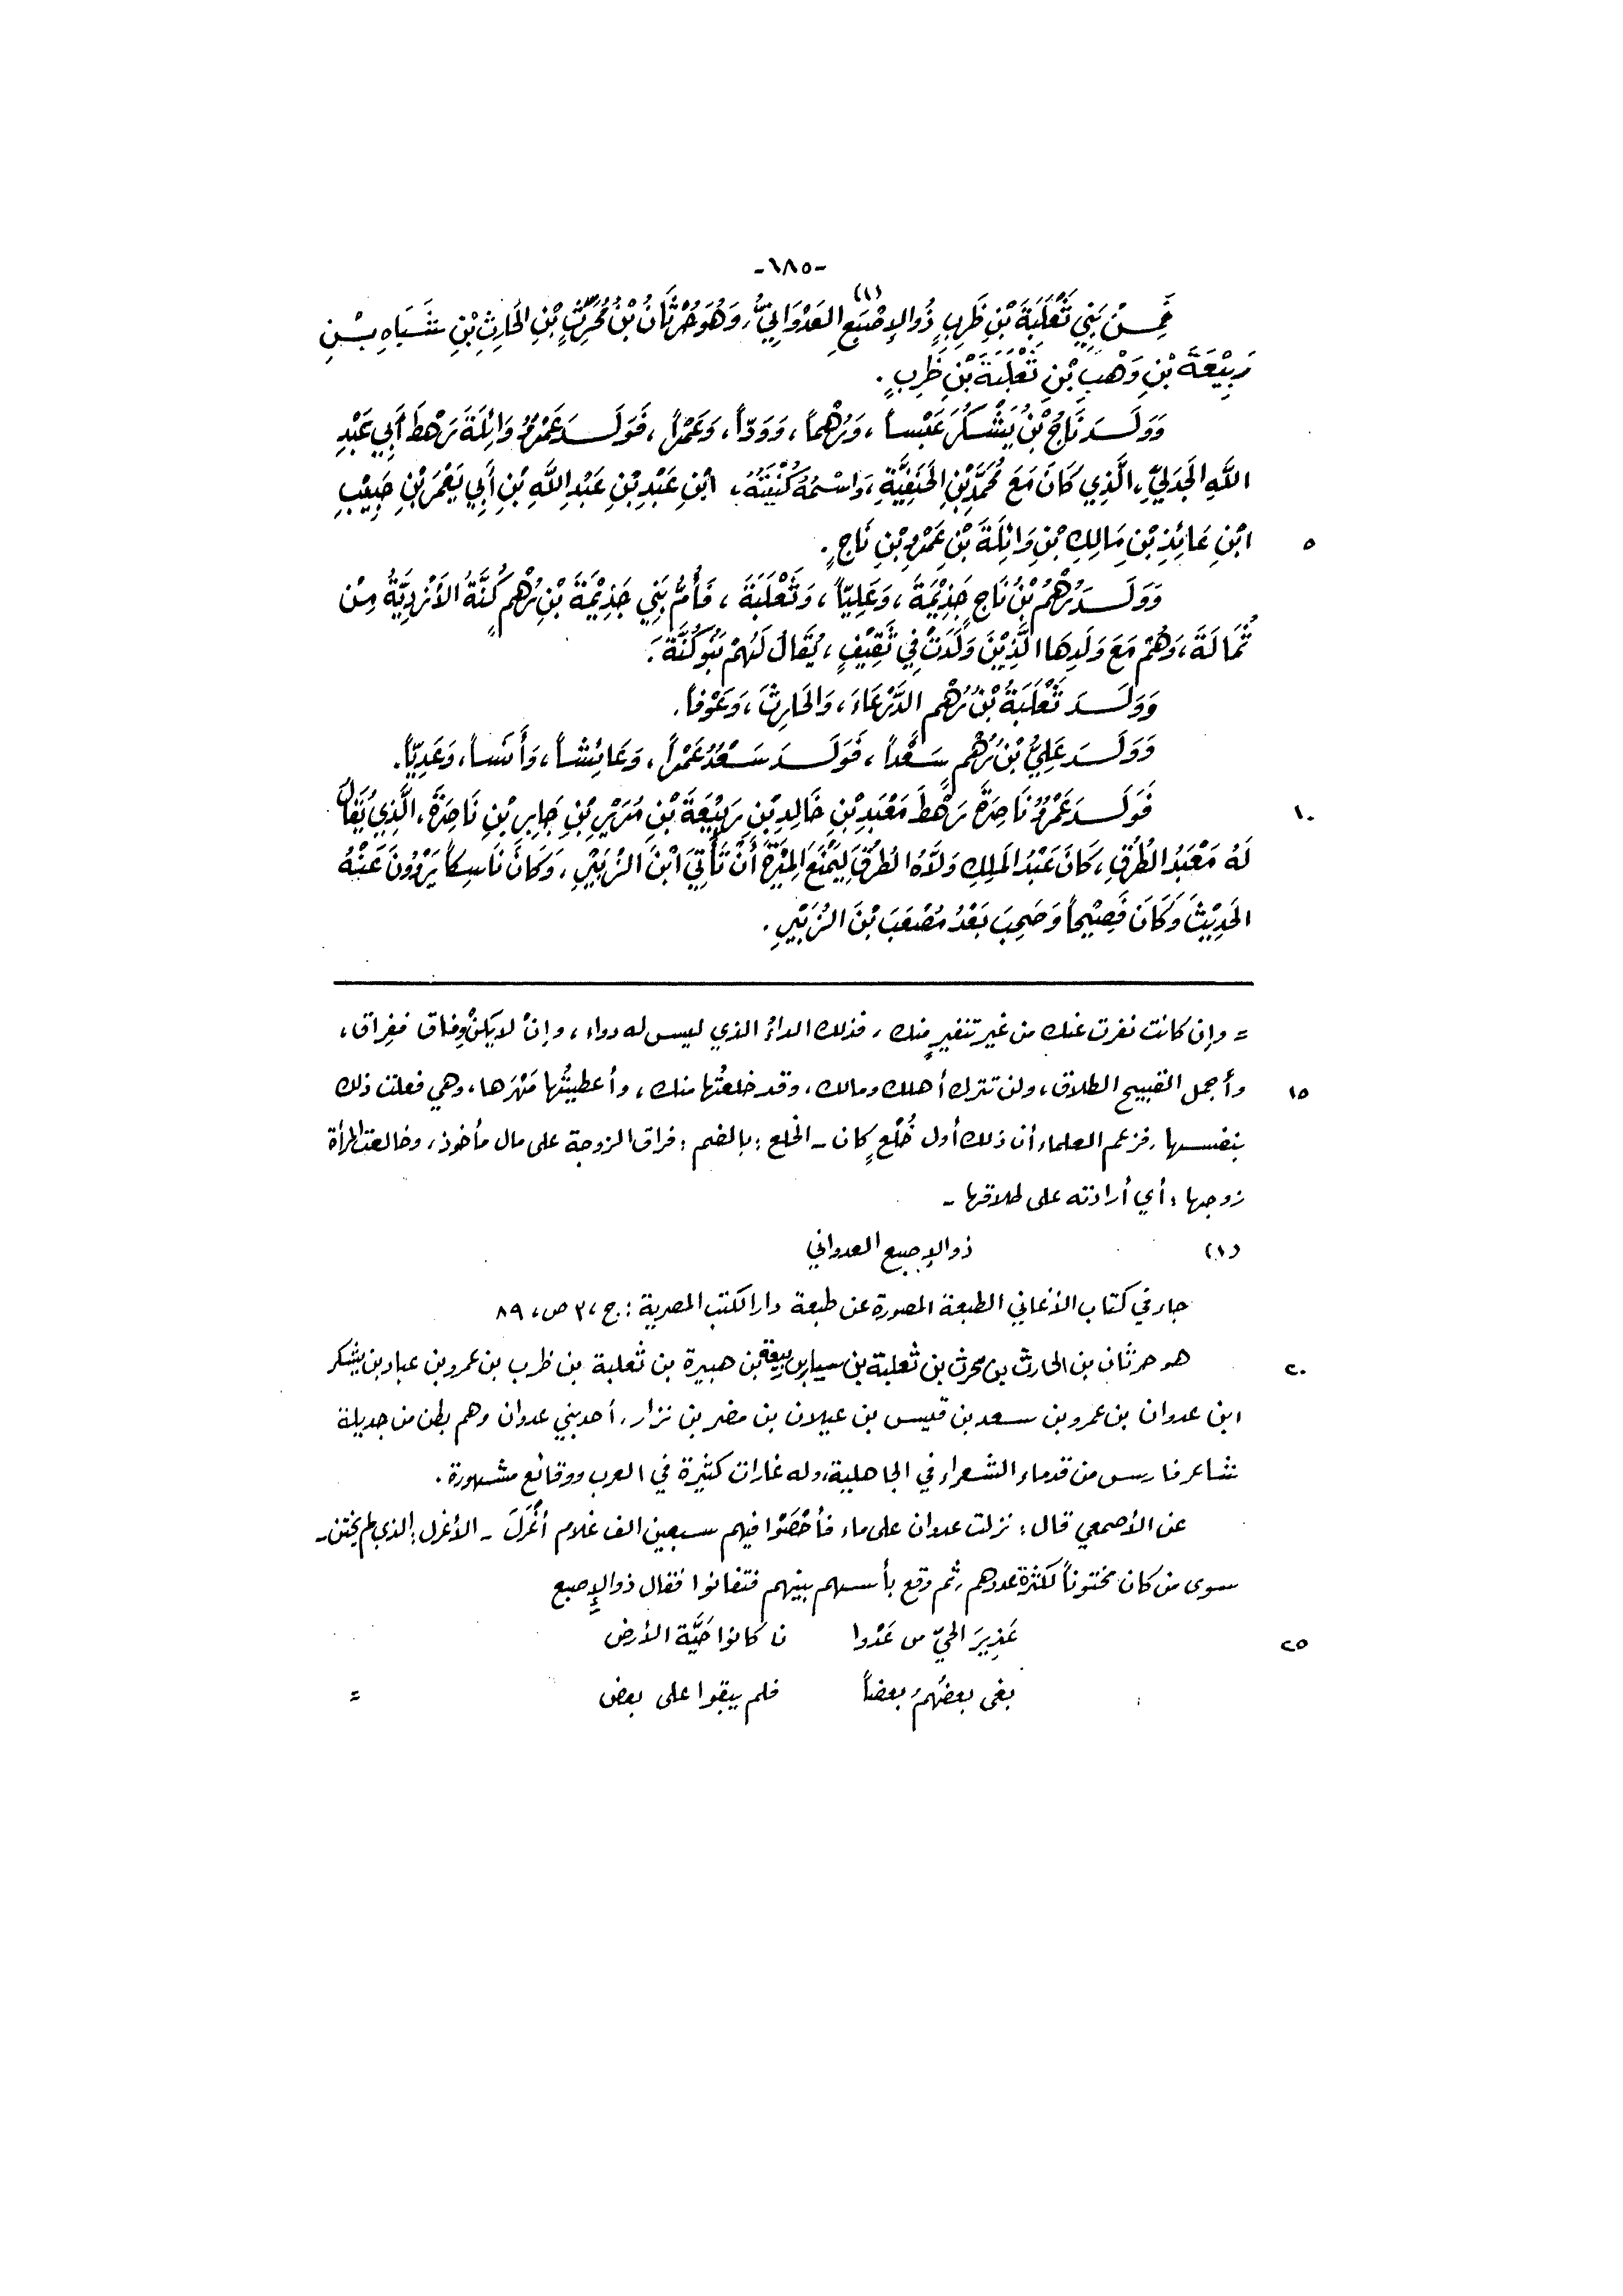 -٦٨٥-
فَمِنْ بَنِي ثَعْلَبَةَ بْنِ ظَرِبٍ ذُو الإِصْبَعِ العَدْوَانِيُّ (١)، وَهُوَ حُرْثَانُ بْنُ مُحَرِّثِ بْنِ الحَارِثِ بْنِ شَبَاهِ بْنِ
رَبِيْعَةَ بْنِ وَهْبِ بْنِ ثَعْلَبَةَ بْنِ ظَرِبٍ.
وَوَلَدَ نَاجُ بْنُ يَشْكُرَ عَبْساً، وَرُهْماً، وَوَدّاً، وَعَمْراً، فَوَلَدَ عَمْرٌو وَائِلَةَ رَهْطَ أَبِي عَبْدِ
اللَّهِ الجَدَلِيِّ، الَّذِي كَانَ مَعَ مُحَمَّدِ بْنِ الحَنَفِيَّةِ، وَاسْمُهُ كُنْيَتُهُ، ابْنِ عَبْدِ بْنِ عَبْدِ اللَّهِ بْنِ أَبِي يَعْمَرَ بْنِ حَبِيْبِ
ابْنِ عَائِذِ بْنِ مَالِكِ بْنِ وَائِلَةَ بْنِ عَمْرِو بْنِ نَاجٍ.
٥
وَوَلَدَ رُهْمُ بْنُ نَاجٍ جَذِيْمَةَ، وَعَلِيّاً، وَثَعْلَبَةَ، فَأُمُّ بَنِي جَذِيْمَةَ بْنِ رُهْمٍ كُنَّةُ الأَزْدِيَّةُ مِنْ
ثُمَالَةَ، وَهُمْ مَعَ وَلَدِهَا الَّذِيْنَ وَلَدَتْ فِي ثَقِيْفٍ، يُقَالُ لَهُمْ بَنُو كُنَّةَ.
وَوَلَدَ ثَعْلَبَةُ بْنُ رُهْمٍ الدَّرْعَاءَ، وَالحَارِثَ، وَعَوْفاً.
وَوَلَدَ عَلِيُّ بْنُ رُهْمٍ سَعْداً، فَوَلَدَ سَعْدٌ عَمْراً، وَعَائِشاً، وَأَنَساً، وَعَدِيّاً.
فَوَلَدَ عَمْرٌو نَاصِرَةَ رَهْطَ مَعْبَدِ بْنِ خَالِدِ بْنِ رَبِيْعَةَ بْنِ مُرَيْرِ بْنِ جَابِرِ بْنِ نَاصِرَةَ، الَّذِي يُقَالُ
١٠
لَهُ مَعْبَدُ الطُّرُقِ، كَانَ عَبْدُ المَلِكِ وَلَّاهُ الطُّرُقَ لِيَمْنَعَ المِيْرَةَ أَنْ تَأْتِيَ ابْنَ الزُّبَيْرِ، وَكَانَ نَاسِكاً يَرْوُونَ عَنْهُ
الحَدِيْثَ وَكَانَ فَصِيْحاً وَصَحِبَ بَعْدُ مُصْعَبَ بْنَ الزُّبَيْرِ.
= وإن كانت نفرت عنك من غير تنفيرٍ منك، فذلك الداءُ الذي ليس له دواء، وإنْ لا يكنْ وفاق ففِراق،
وأجمل القبيح الطلاق، ولن تترك أهلك ومالك، وقد خلعتُها منك، وأعطيتُها مَهْرَها، وهي فعلت ذلك
١٥
بنفسها، فزعم العلماء أن ذلك أول خُلْعٍ كان - الخلع: بالضم: فراق الزوجة على مال مأخوذ، وخالعت المرأة
زوجها: أي أرادته على طلاقها -
(١) ذو الإصبع العدواني
جاء في كتاب الأغاني الطبعة المصورة عن طبعة دار الكتب المصرية: ج، ٣ ص، ٨٩
هو حرثان بن الحارث بن محرث بن ثعلبة بن سيار بن ربيعة بن هبيرة بن ثعلبة بن ظرب بن عمرو بن عباد بن يشكر
٢٠
ابن عدوان بن عمرو بن سعد بن قيس بن عيلان بن مضر بن نزار، أحد بني عدوان وهم بطن من جديلة
شاعر فارس من قدماء الشعراء في الجاهلية، وله غارات كثيرة في العرب ووقائع مشهورة.
عن الأصمعي قال: نزلت عدوان على ماء فأحْصَوْا فيهم سبعين الف غلام أَغْرَلَ - الأغرل: الذي لم يختن -
سوى من كان مختوناً لكثرة عددهم، ثم وقع بأسهم بينهم فتفانوا فقال ذو الإصبع
عَذِيرَ الحيّ من عَدْوا نَ كانوا حَيَّة الأرض
٢٥
بغى بعضُهُمُ بعضاً فلم يبقوا على بعض =